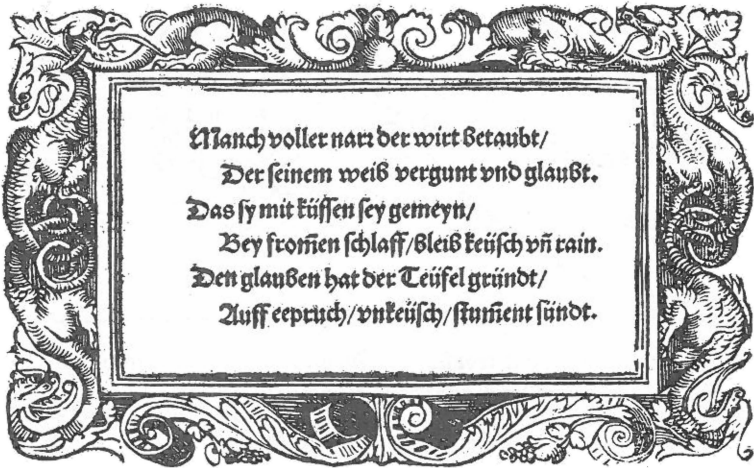 Manch voller narr der wirt betaubt/
Der seinem weib vergunt vnd glaubt.
Das sy mit küssen sey gemeyn/
Bey from̃en schlaff/bleib keüsch vñ rain.
Den glauben hat der Teüfel gründt/
Auff eepruch/vnkeüsch/stum̃ent sündt.